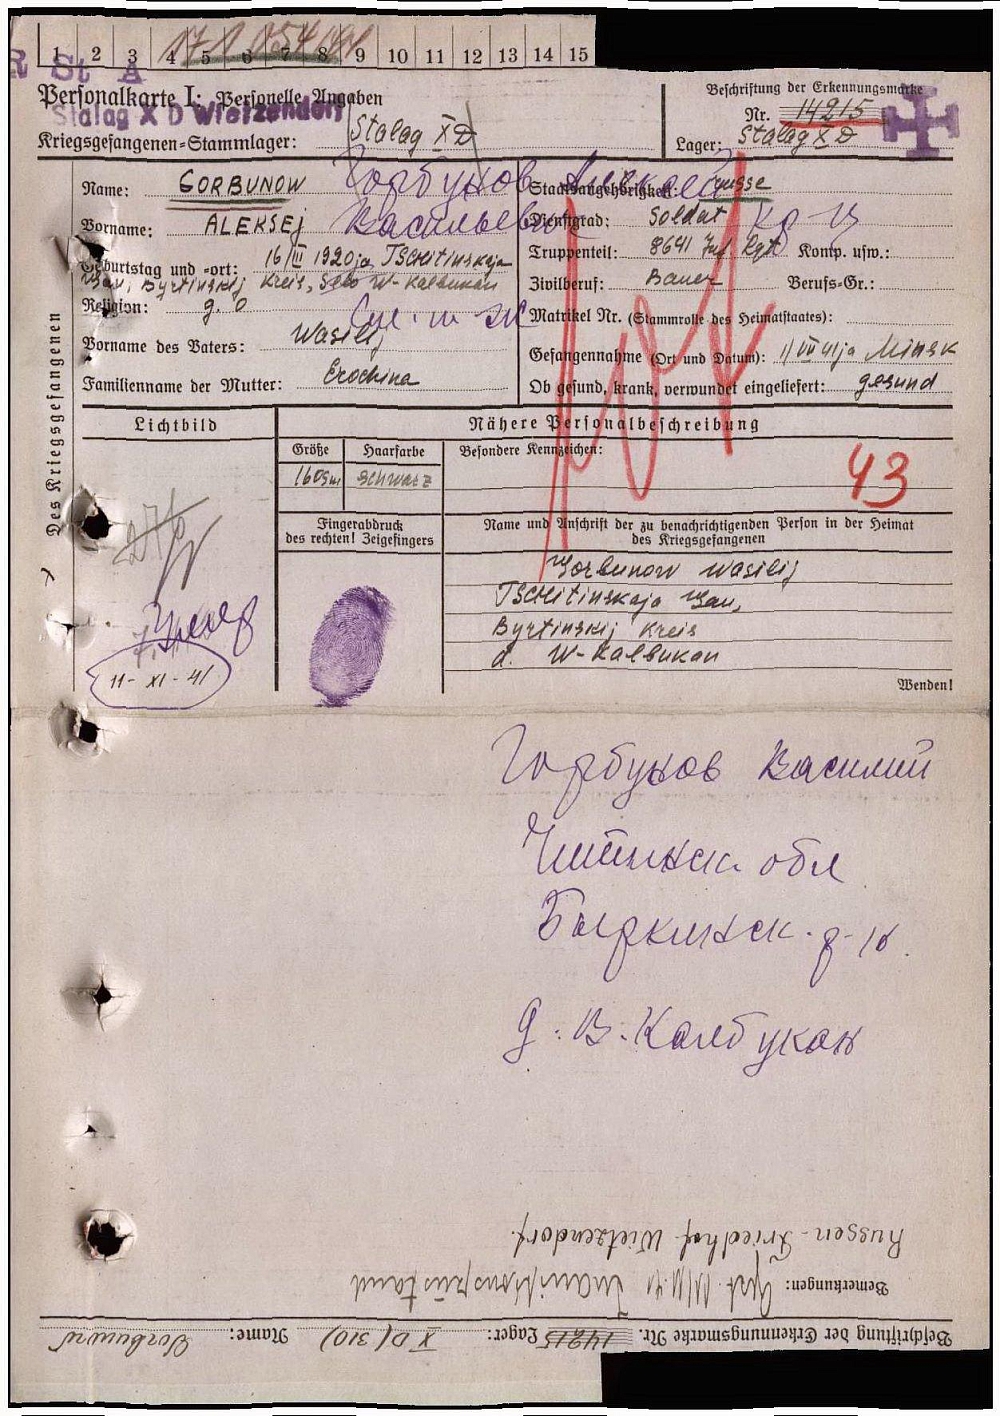 1 2 3 4 5 6 7 8 9 10 11 12 13 14 15
R St A
Personalkarte I: Personelle Angaben
Stalag X D Wietzendorf
Kriegsgefangenen=Stammlager: Stalag X D
Beschriftung der Erkennungsmarke
Nr. 14215
Lager: Stalag X D
Des Kriegsgefangenen
Name: GORBUNOW
Горбунов Алексей
Vorname: ALEKSEJ
Васильевич
Geburtstag und =ort: 16/III 1920 ja TSCHitinskaja
Gau, Byrtinskij Kreis, Selo W-Kalbukan
Religion: g. o
Vorname des Vaters: Wasilij
Familienname der Mutter: Erochina
Staatsangehörigkeit: russe
Dienstgrad: Soldat
Truppenteil: 8641 Inf Rgt Komp. usw.:
Zivilberuf: Bauer Berufs=Gr.:
Matrikel Nr. (Stammrolle des Heimatstaates):
Gefangennahme (Ort und Datum): 1/VII 41 ja Minsk
Ob gesund, krank, verwundet eingeliefert: gesund
Lichtbild
Nähere Personalbeschreibung
Größe Haarfarbe Besondere Kennzeichen:
schwarz
43
Fingerabdruck
des rechten! Zeigefingers
Name und Anschrift der zu benachrichtigenden Person in der Heimat
des Kriegsgefangenen
Gorbunow Wasilij
TSCHitinskaja Gau,
Byrtinskij Kreis
d. W-Kalbukan
11-XI-41
Wenden!
Горбунов Василий
Читинск. обл
Быркинск. р-н.
д. В. Калбукан
Beschriftung der Erkennungsmarke Nr. 14215 Lager: X D (310) Name: Gorbunow
Bemerkungen: Gest. 11/11.41 Inanitionszustand
Russen-Friedhof Wietzendorf.